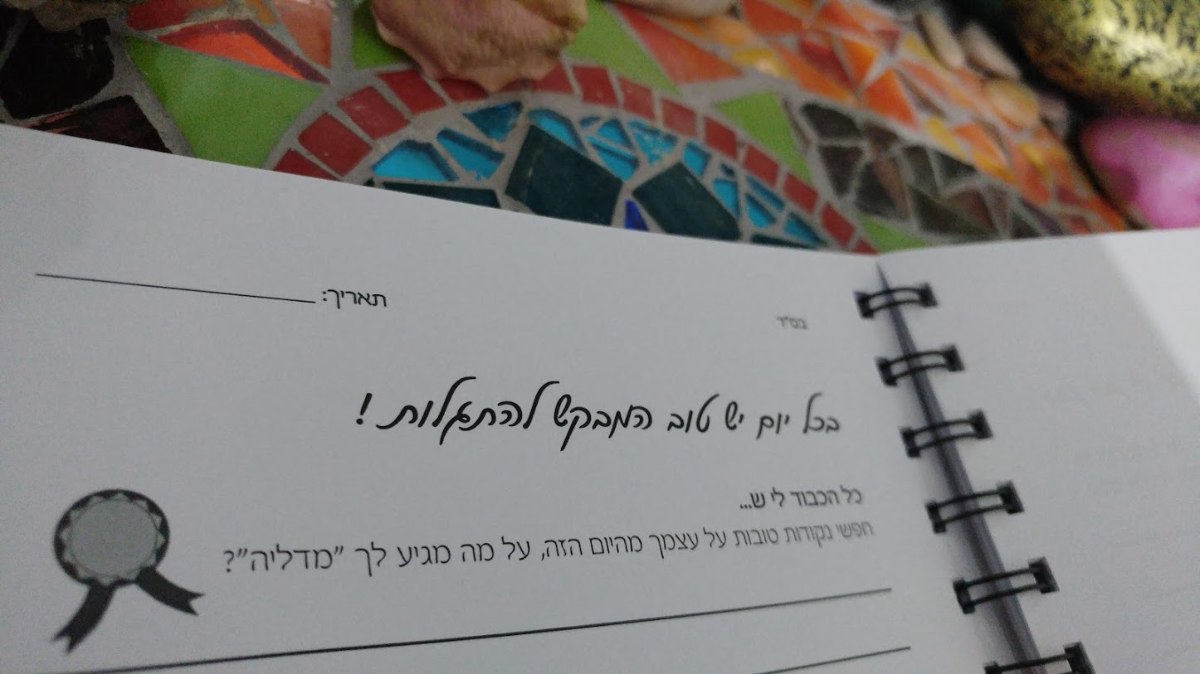 בס"ד
תאריך:
בכל יום יש טוב המבקש להתגלות!
כל הכבוד לי ש...
חפשי נקודות טובות על עצמך מהיום הזה, על מה מגיע לך "מדליה"?